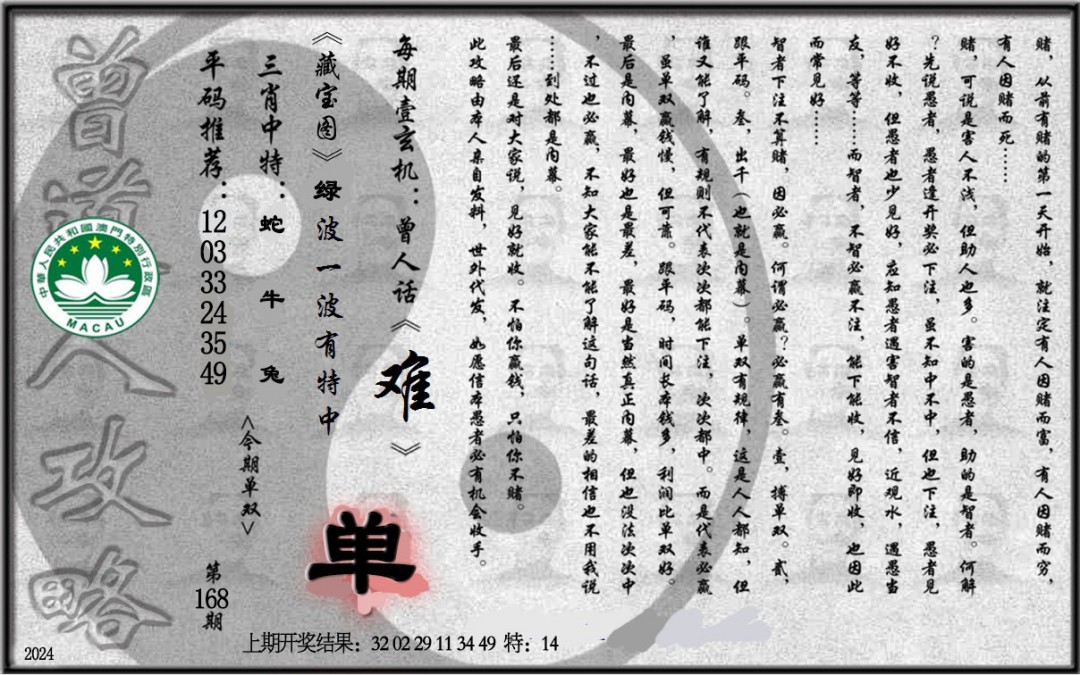 赌，从前有赌的第一天开始，就注定有人因赌而富，有人因赌而穷，
有人因赌而死……
赌，可说是害人不浅，但助人也多。害的是愚者，助的是智者。何解
？先说愚者，愚者逢开奖必下注，虽不知中不中，但也下注，愚者见
好不收，但愚者也少见好，应知愚者遇害智者不信，近观水，遇愚当
友，等等……而智者，不智必赢不注，能下能收，见好即收，也因此
而常见好……
智者下注不算赌，因必赢。何谓必赢？必赢有叁。壹，搏单双。贰，
跟平码。叁，出千（也就是内幕）。单双有规律，这是人人都知，但
谁又能了解，有规则不代表次次都能下注，次次都中。而是代表必赢
，虽单双赢钱慢，但可靠。跟平码，时间长本钱多，利润比单双好。
最后是内幕，最好也是最差，最好是当然真正内幕，但也没法次次中
，不过也必赢，不知大家能不能了解这句话，最差的相信也不用我说
……到处都是内幕。
最后还是对大家说，见好就收。不怕你赢钱，只怕你不赌。
此攻略由本人亲自发料，世外代发，如愿信本愚者必有机会收手。
每期壹玄机：曾人话《难》
《藏宝图》绿波一波有特中
三肖中特：蛇 牛 兔
平码推荐：12 03 33 24 35 49
<今期单双>
单
第168期
曾道人攻略
中華人民共和國澳門特別行政區
MACAU
上期开奖结果：32 02 29 11 34 49 特：14
2024